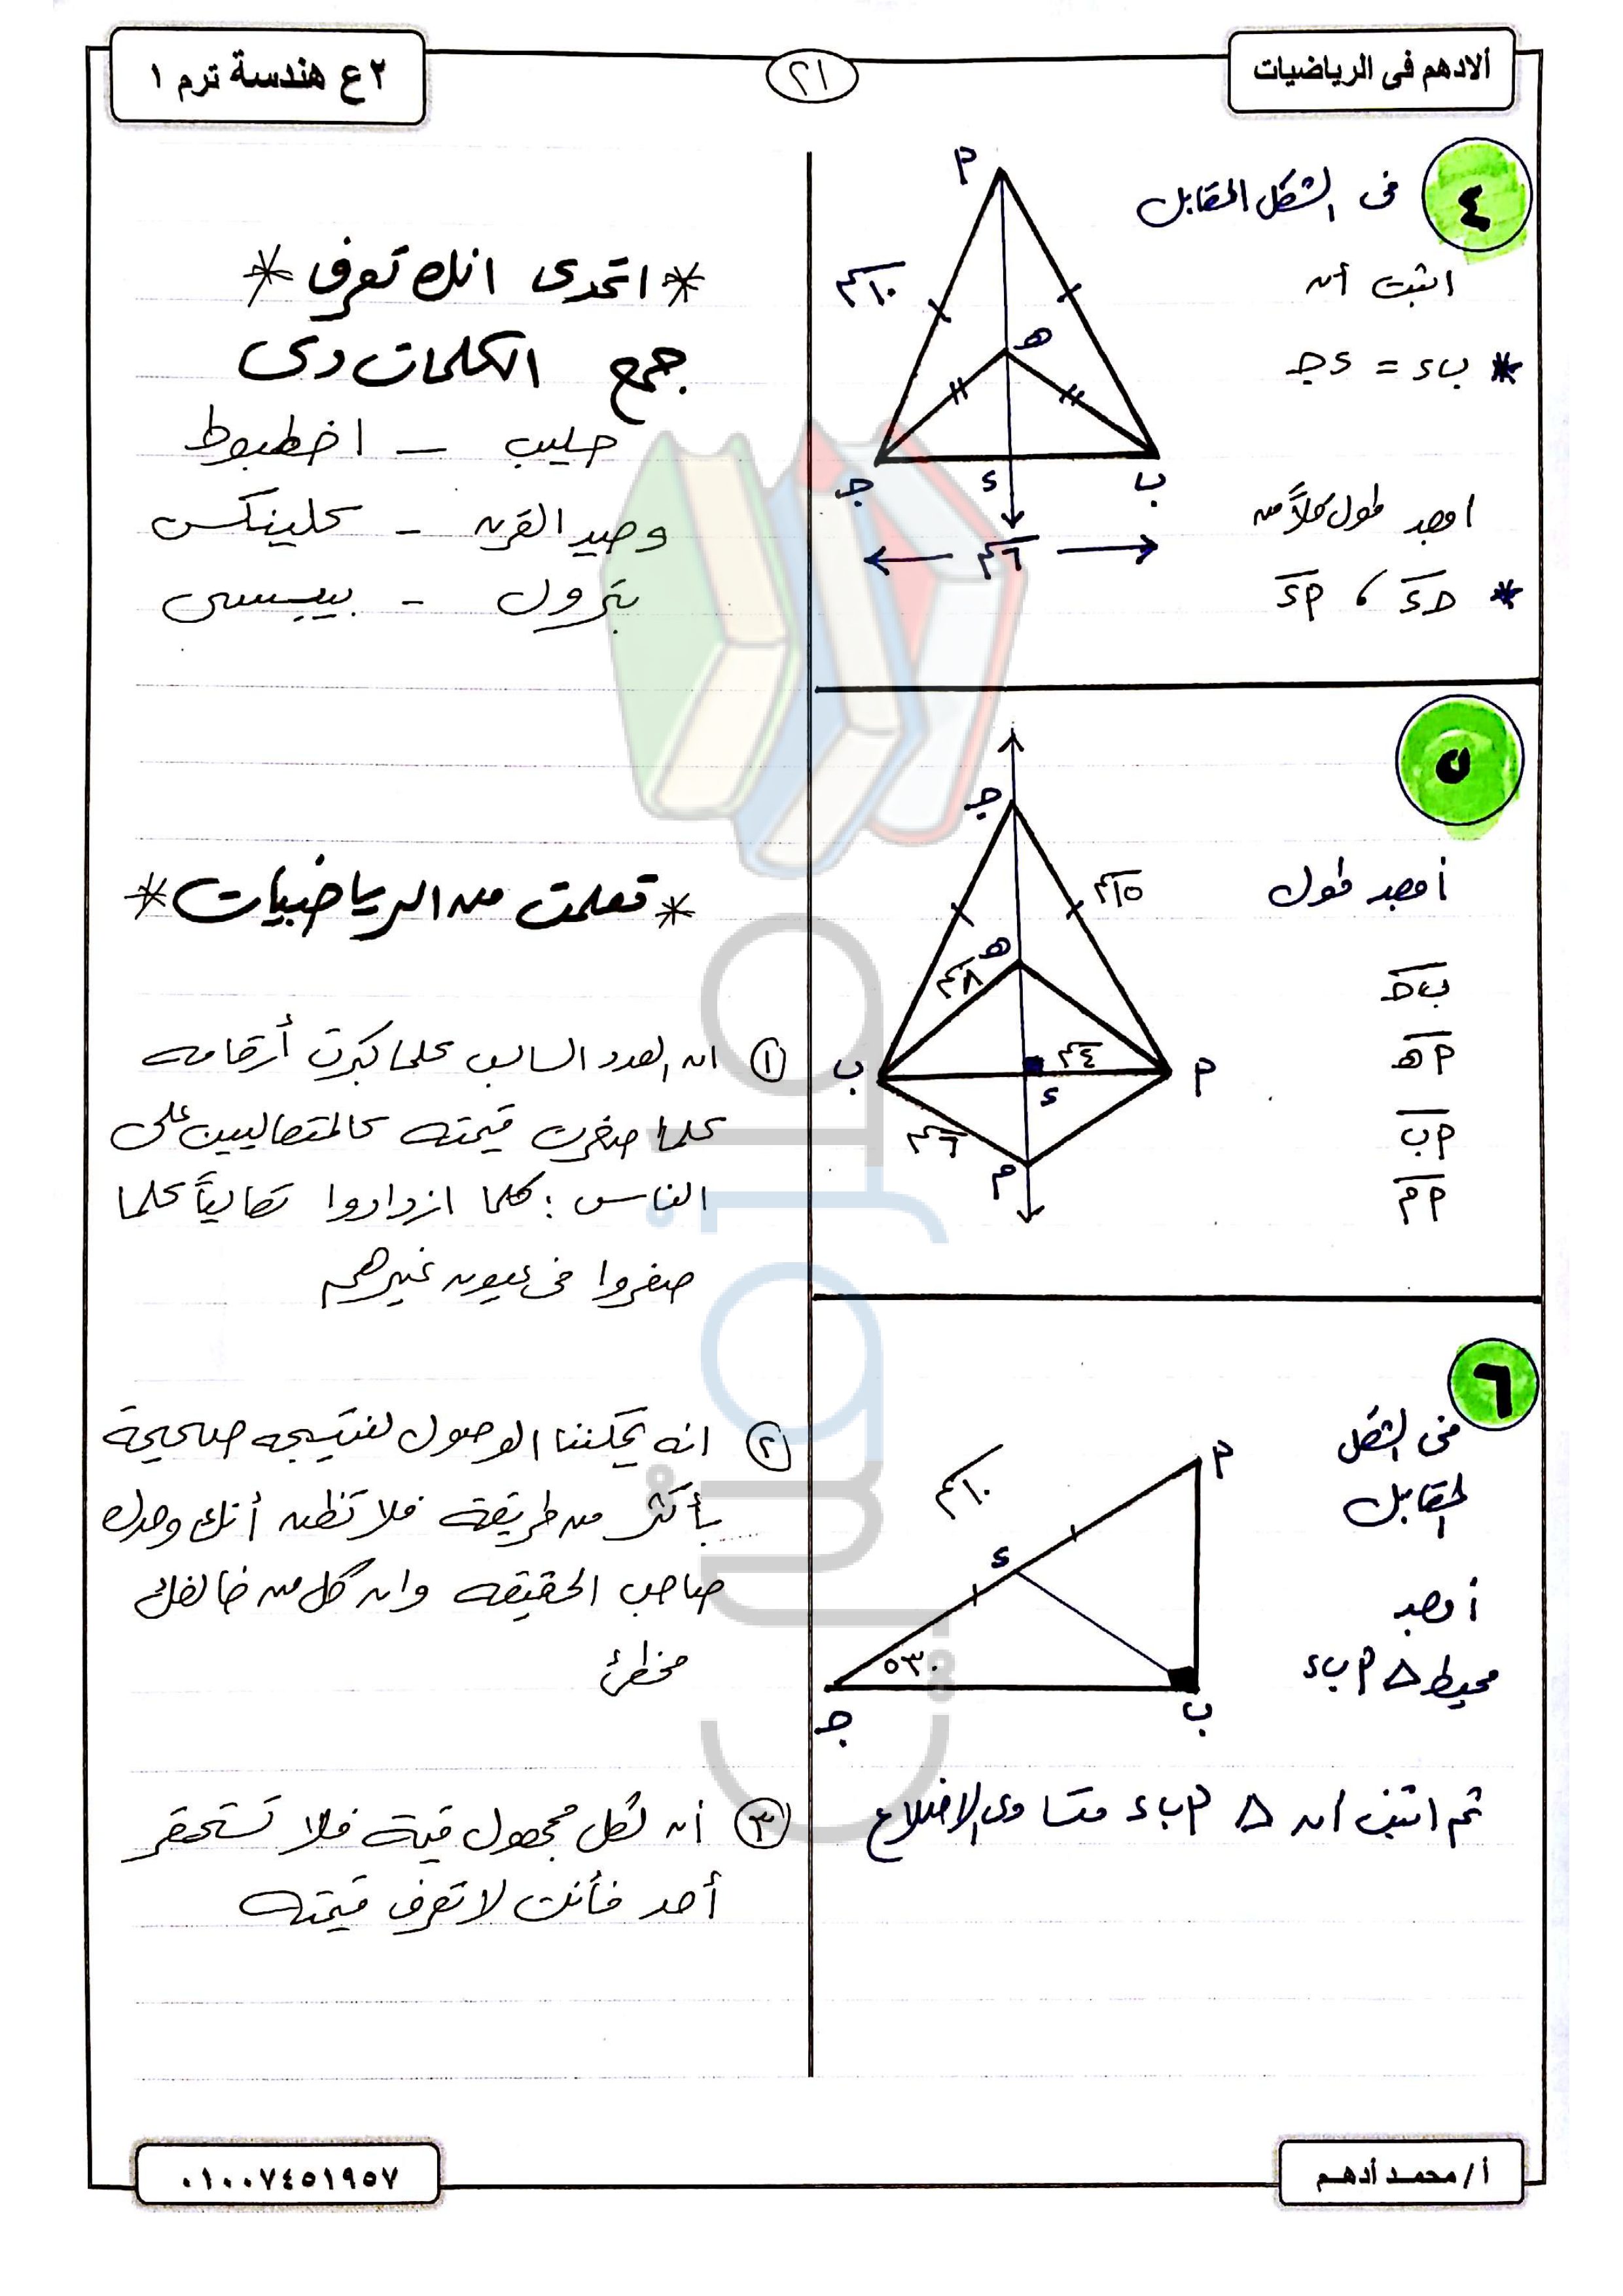 ألادهم فى الرياضيات
٢١
٢ع هندسة ترم ١
٤
فى الشكل المقابل
اثبت أن
* ب ء = ء جـ
اوجد طول كلاً من
* هـ ء ، أ ء
أ
١٠سم
هـ
جـ
ء
ب
٦سم
٥
أوجد طول
ب جـ
أ هـ
أ ب
أ م
جـ
١٥سم
هـ
٨سم
٤سم
ب
أ
ء
٦سم
م
٦
فى الشكل
المقابل
أوجد
محيط △ أ ب ء
أ
١٠سم
ء
٣٠°
جـ
ب
ثم اثبت ان △ أ ب ء متساوى الاضلاع
* اتحدى انك تعرف *
جمع الكلمات دى
حليب - اخطبوط
وحيد القرن - كلينكس
بترول - بيبسى
* تعلمت من الرياضيات *
١ ان العدد السالب كلما كبرت أرقامه
كلما صغرت قيمته كالمتعاليين على
الناس : كلما ازدادوا تعالياً كلما
صغروا فى عيون غيرهم
٢ انه يمكننا الوصول لنتيجه صحيحة
بأكثر من طريقة فلا تظن أنك وحدك
صاحب الحقيقه وان كل من خالفك
مخطئ
٣ أن لكل مجهول قيمة فلا تستحقر
أحد فأنت لا تعرف قيمته
أ/ محمد أدهم
٠١٠٠٧٤٥١٩٥٧